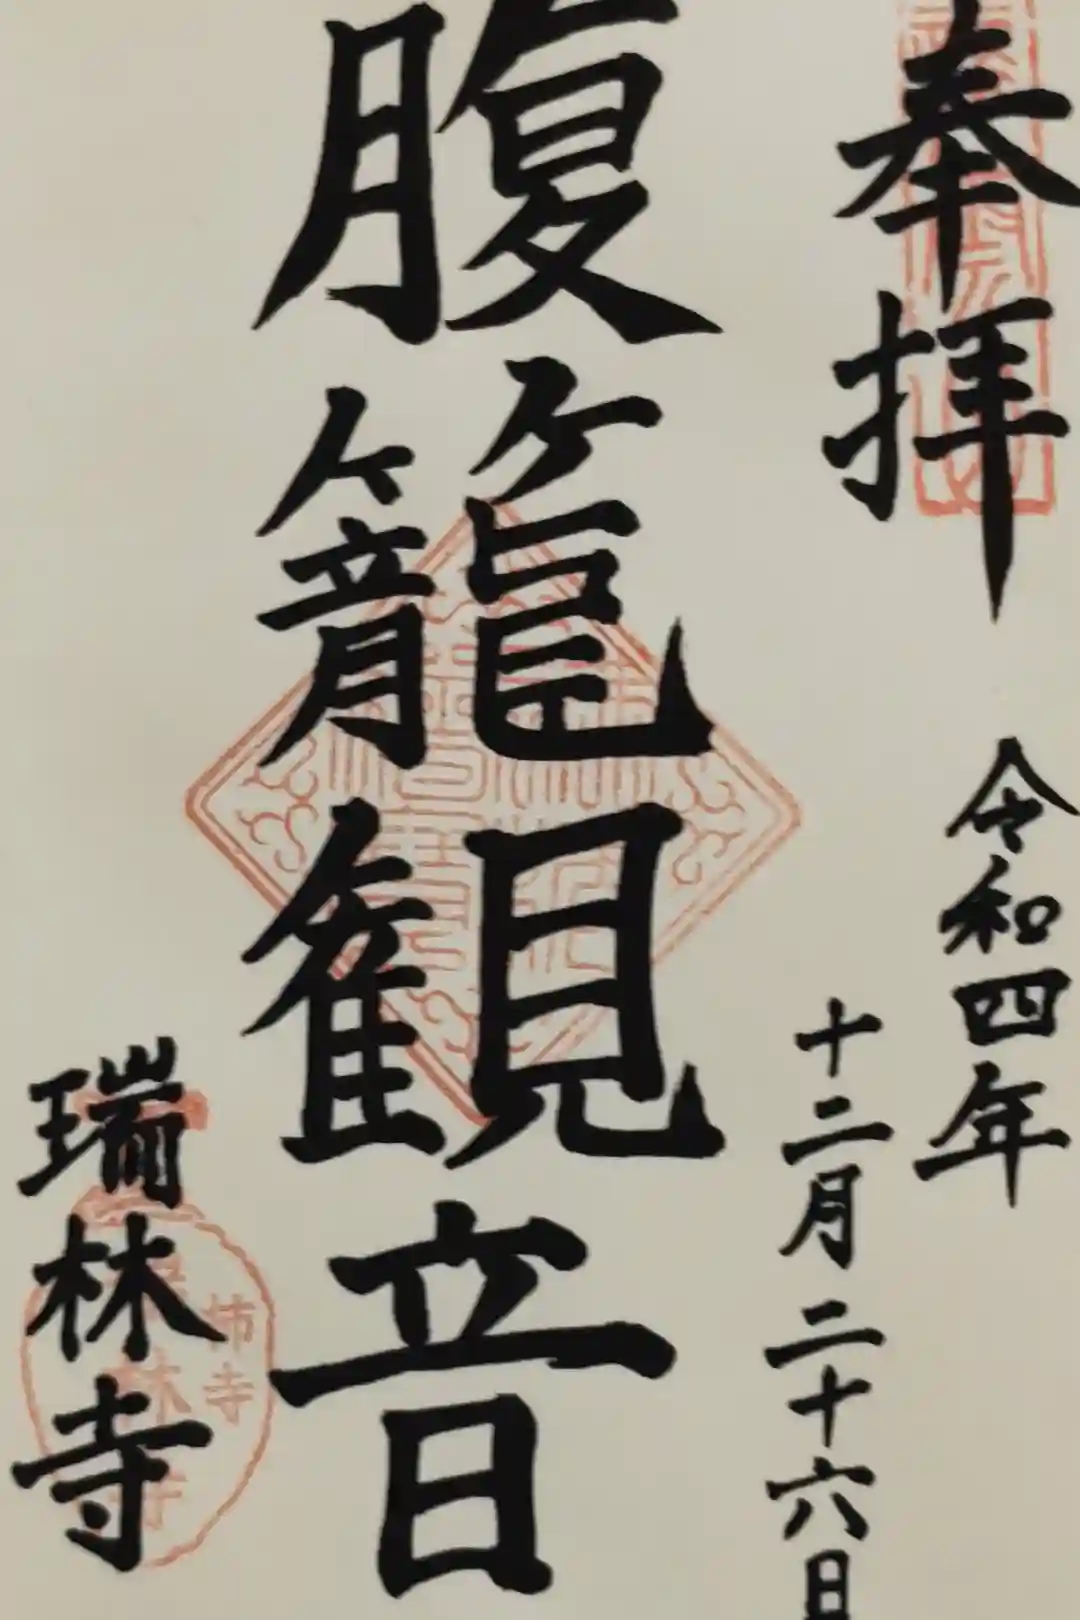 奉拝
令和四年
十二月二十六日
腹籠観音
瑞林寺